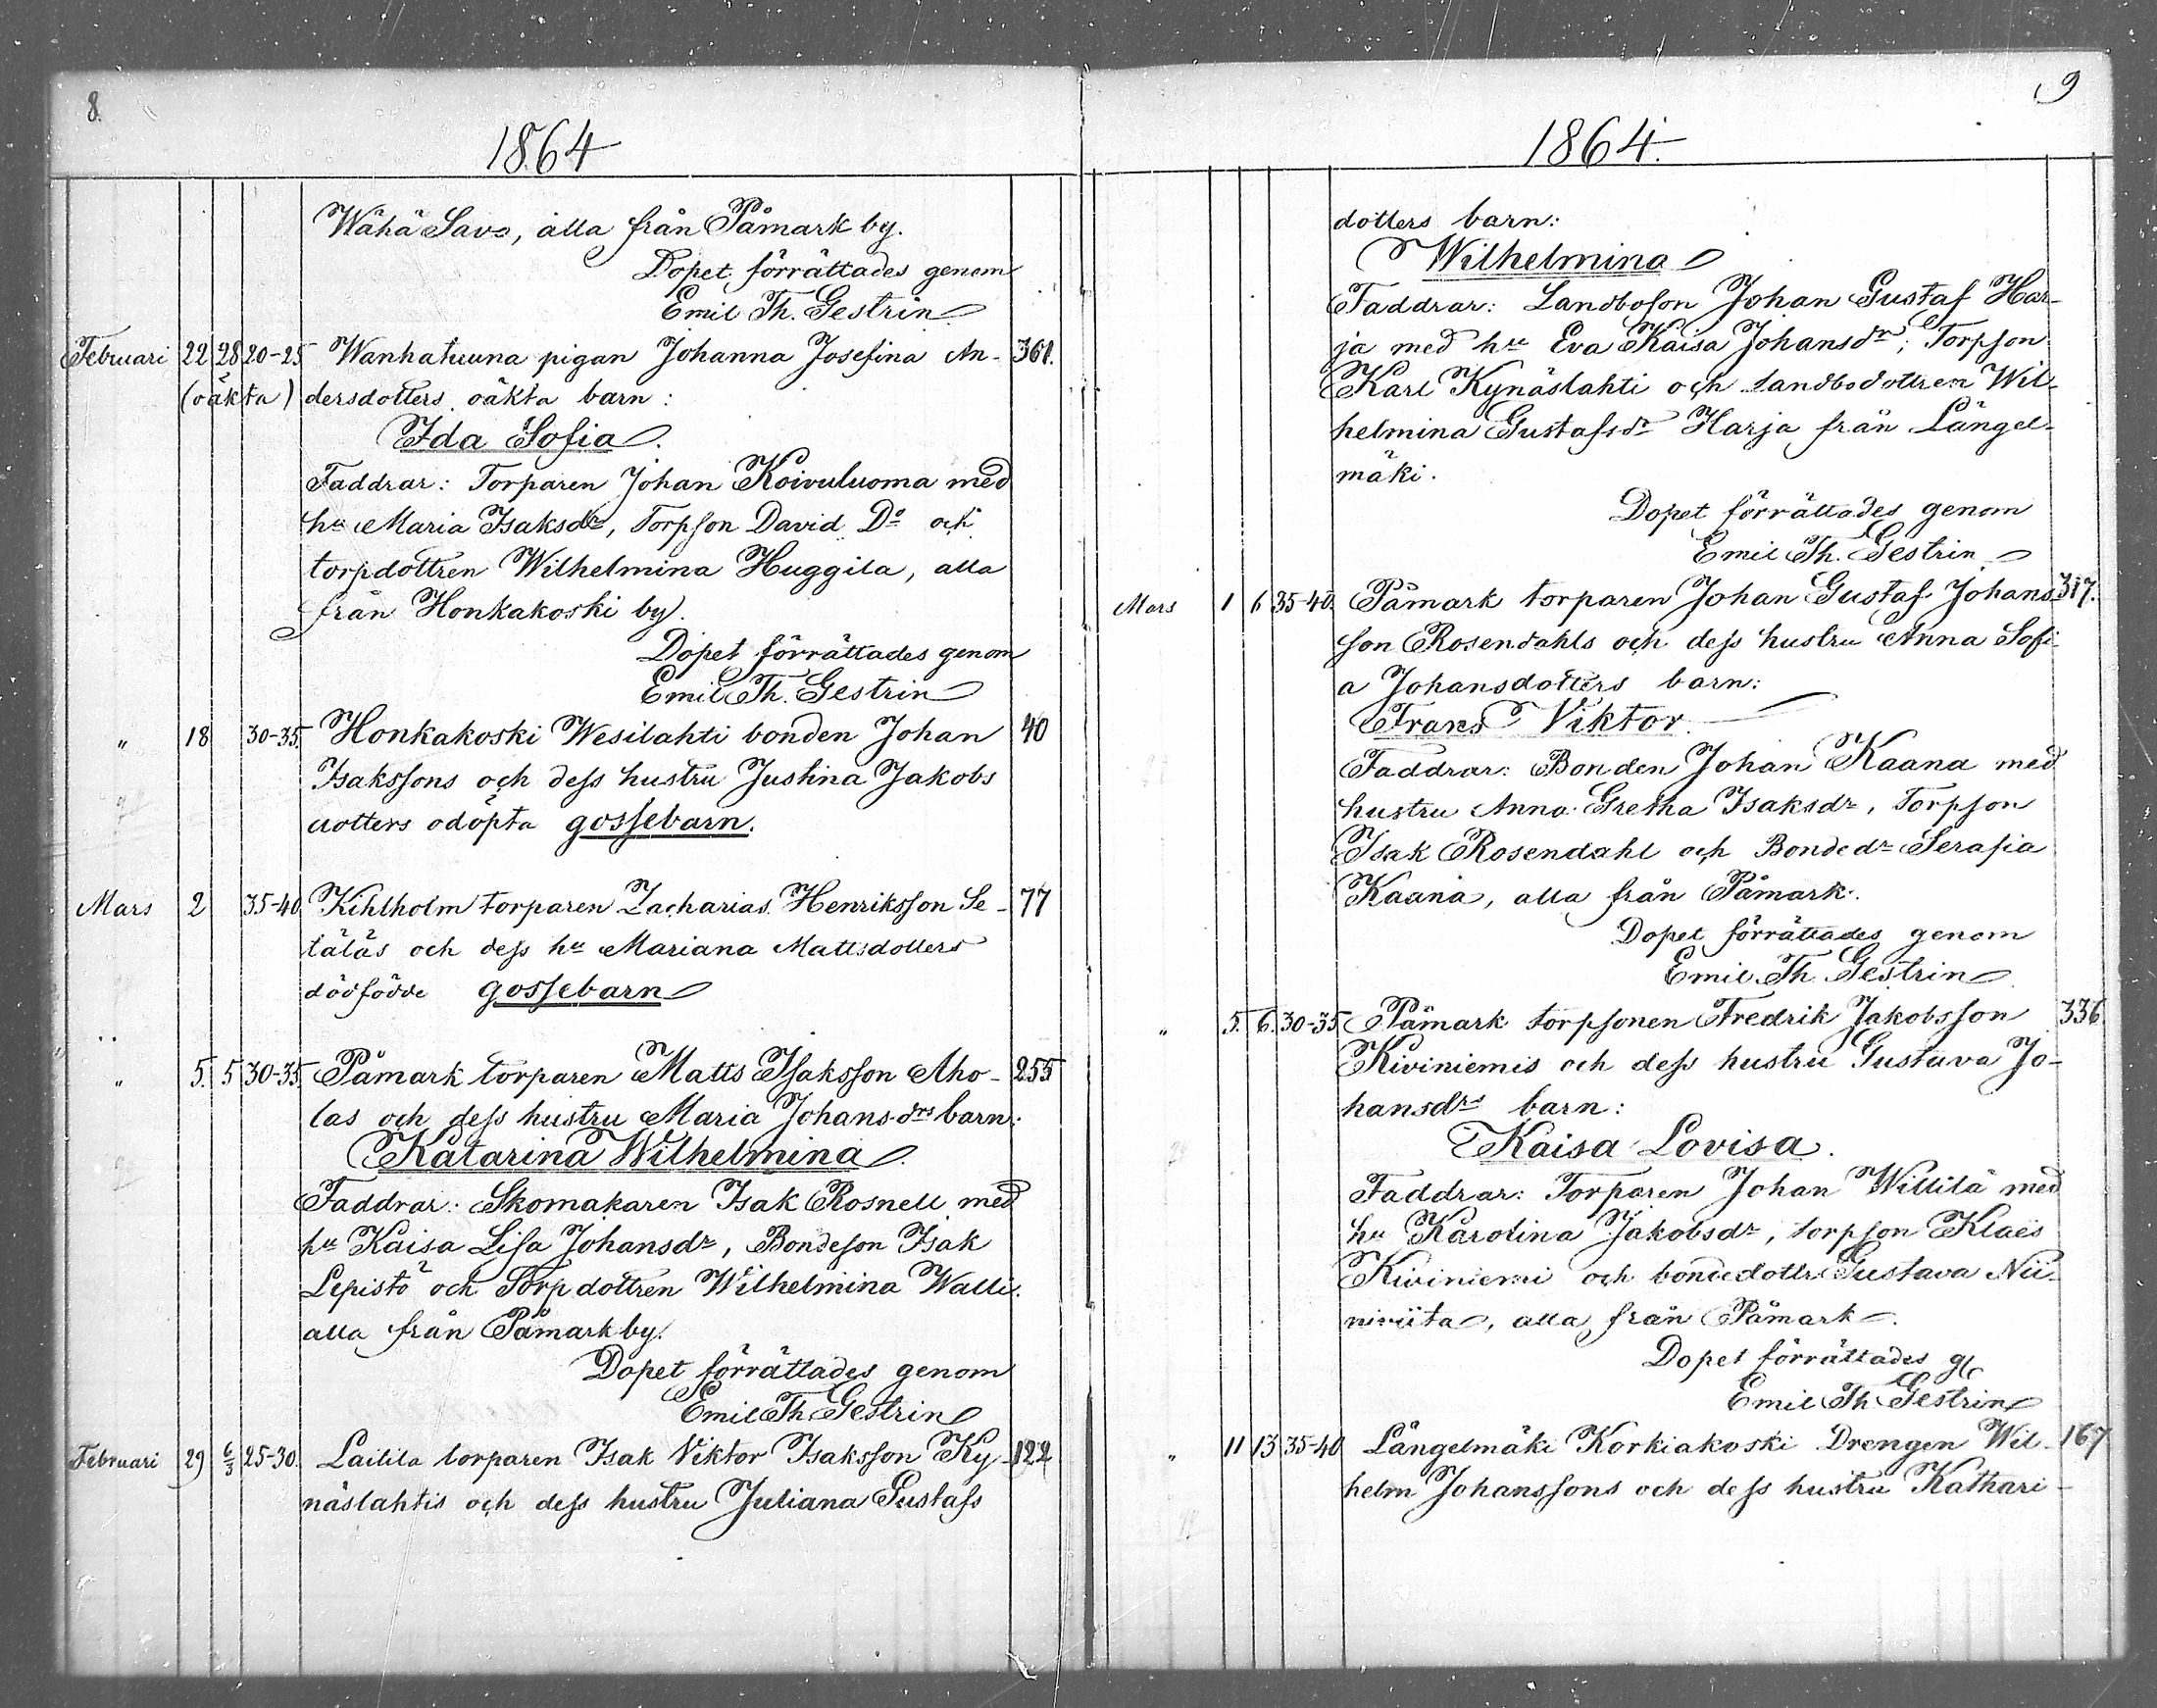 8.
1864
Wähä Savo, alla från Påmark by.
Dopet förrättades genom
Emil Th. Gestrin
Februari 22 28 20-25 Wanhatuuna pigan Johanna Josefina An- 361.
(oäkta) dersdotters oäkta barn:
Ida Sofia.
Faddrar: Torparen Johan Koivuluoma med
hu Maria Isaksdr, Torpson David Do och
torpdottren Wilhelmina Huggila, alla
från Honkakoski by.
Dopet förrättades genom
Emil Th. Gestrin
" 18 30-35. Honkakoski Wesilahti bonden Johan 40
Isakssons och dess hustru Justina Jakobs
dotters odöpta gossebarn.
Mars 2 35-40 Kihlholm torparen Zacharias Henriksson Se- 77
täläs och dess hu Mariana Mattsdotters
dödfödde gossebarn
" 5. 5 30-35. Påmark torparen Matts Isaksson Aho- 255
las och dess hustru Maria Johansdrs barn:
Katarina Wilhelmina.
Faddrar: Skomakaren Isak Rosnell med
hu Kaisa Lisa Johansdr, Bondeson Isak
Lepistö och Torpdottren Wilhelmina Walli.
alla från Påmark by.
Dopet förrättades genom
Emil Th Gestrin
Februari 29 6/3 25-30. Laitila torparen Isak Viktor Isaksson Ky- 122
näslahtis och dess hustru Juliana Gustafs
9
1864.
dotters barn:
Wilhelmina
Faddrar: Landboson Johan Gustaf Har-
ja med hu Eva Kaisa Johansdr; Torpson
Karl Kynäslahti och landbodottren Wil-
helmina Gustafsdr Harja från Längel-
mäki.
Dopet förrättades genom
Emil Th. Gestrin
Mars 1 6 35-40. Påmark torparen Johan Gustaf Johans- 317.
son Rosendahls och dess hustru Anna Sofi-
a Johansdotters barn:
Frans Viktor.
Faddrar: Bonden Johan Kaana med
hustru Anna Gretha Isaksdr, Torpson
Isak Rosendahl och Bondedr Serafia
Kaana, alla från Påmark.
Dopet förrättades genom
Emil Th Gestrin
" 5. 6. 30-35 Påmark torpsonen Fredrik Jakobsson 336
Kiviniemis och dess hustru Gustava Jo-
hansdrs barn:
Kaisa Lovisa.
Faddrar: Torparen Johan Willilä med
hu Karolina Jakobsdr, torpson Klaes
Kiviniemi och bondedottr Gustava Nii-
niviita, alla från Påmark.
Dopet förrättades g
Emil Th Gestrin
" 11 13 35-40 Längelmäki Korkiakoski Drengen Wil- 167
helm Johanssons och dess hustru Kathari-